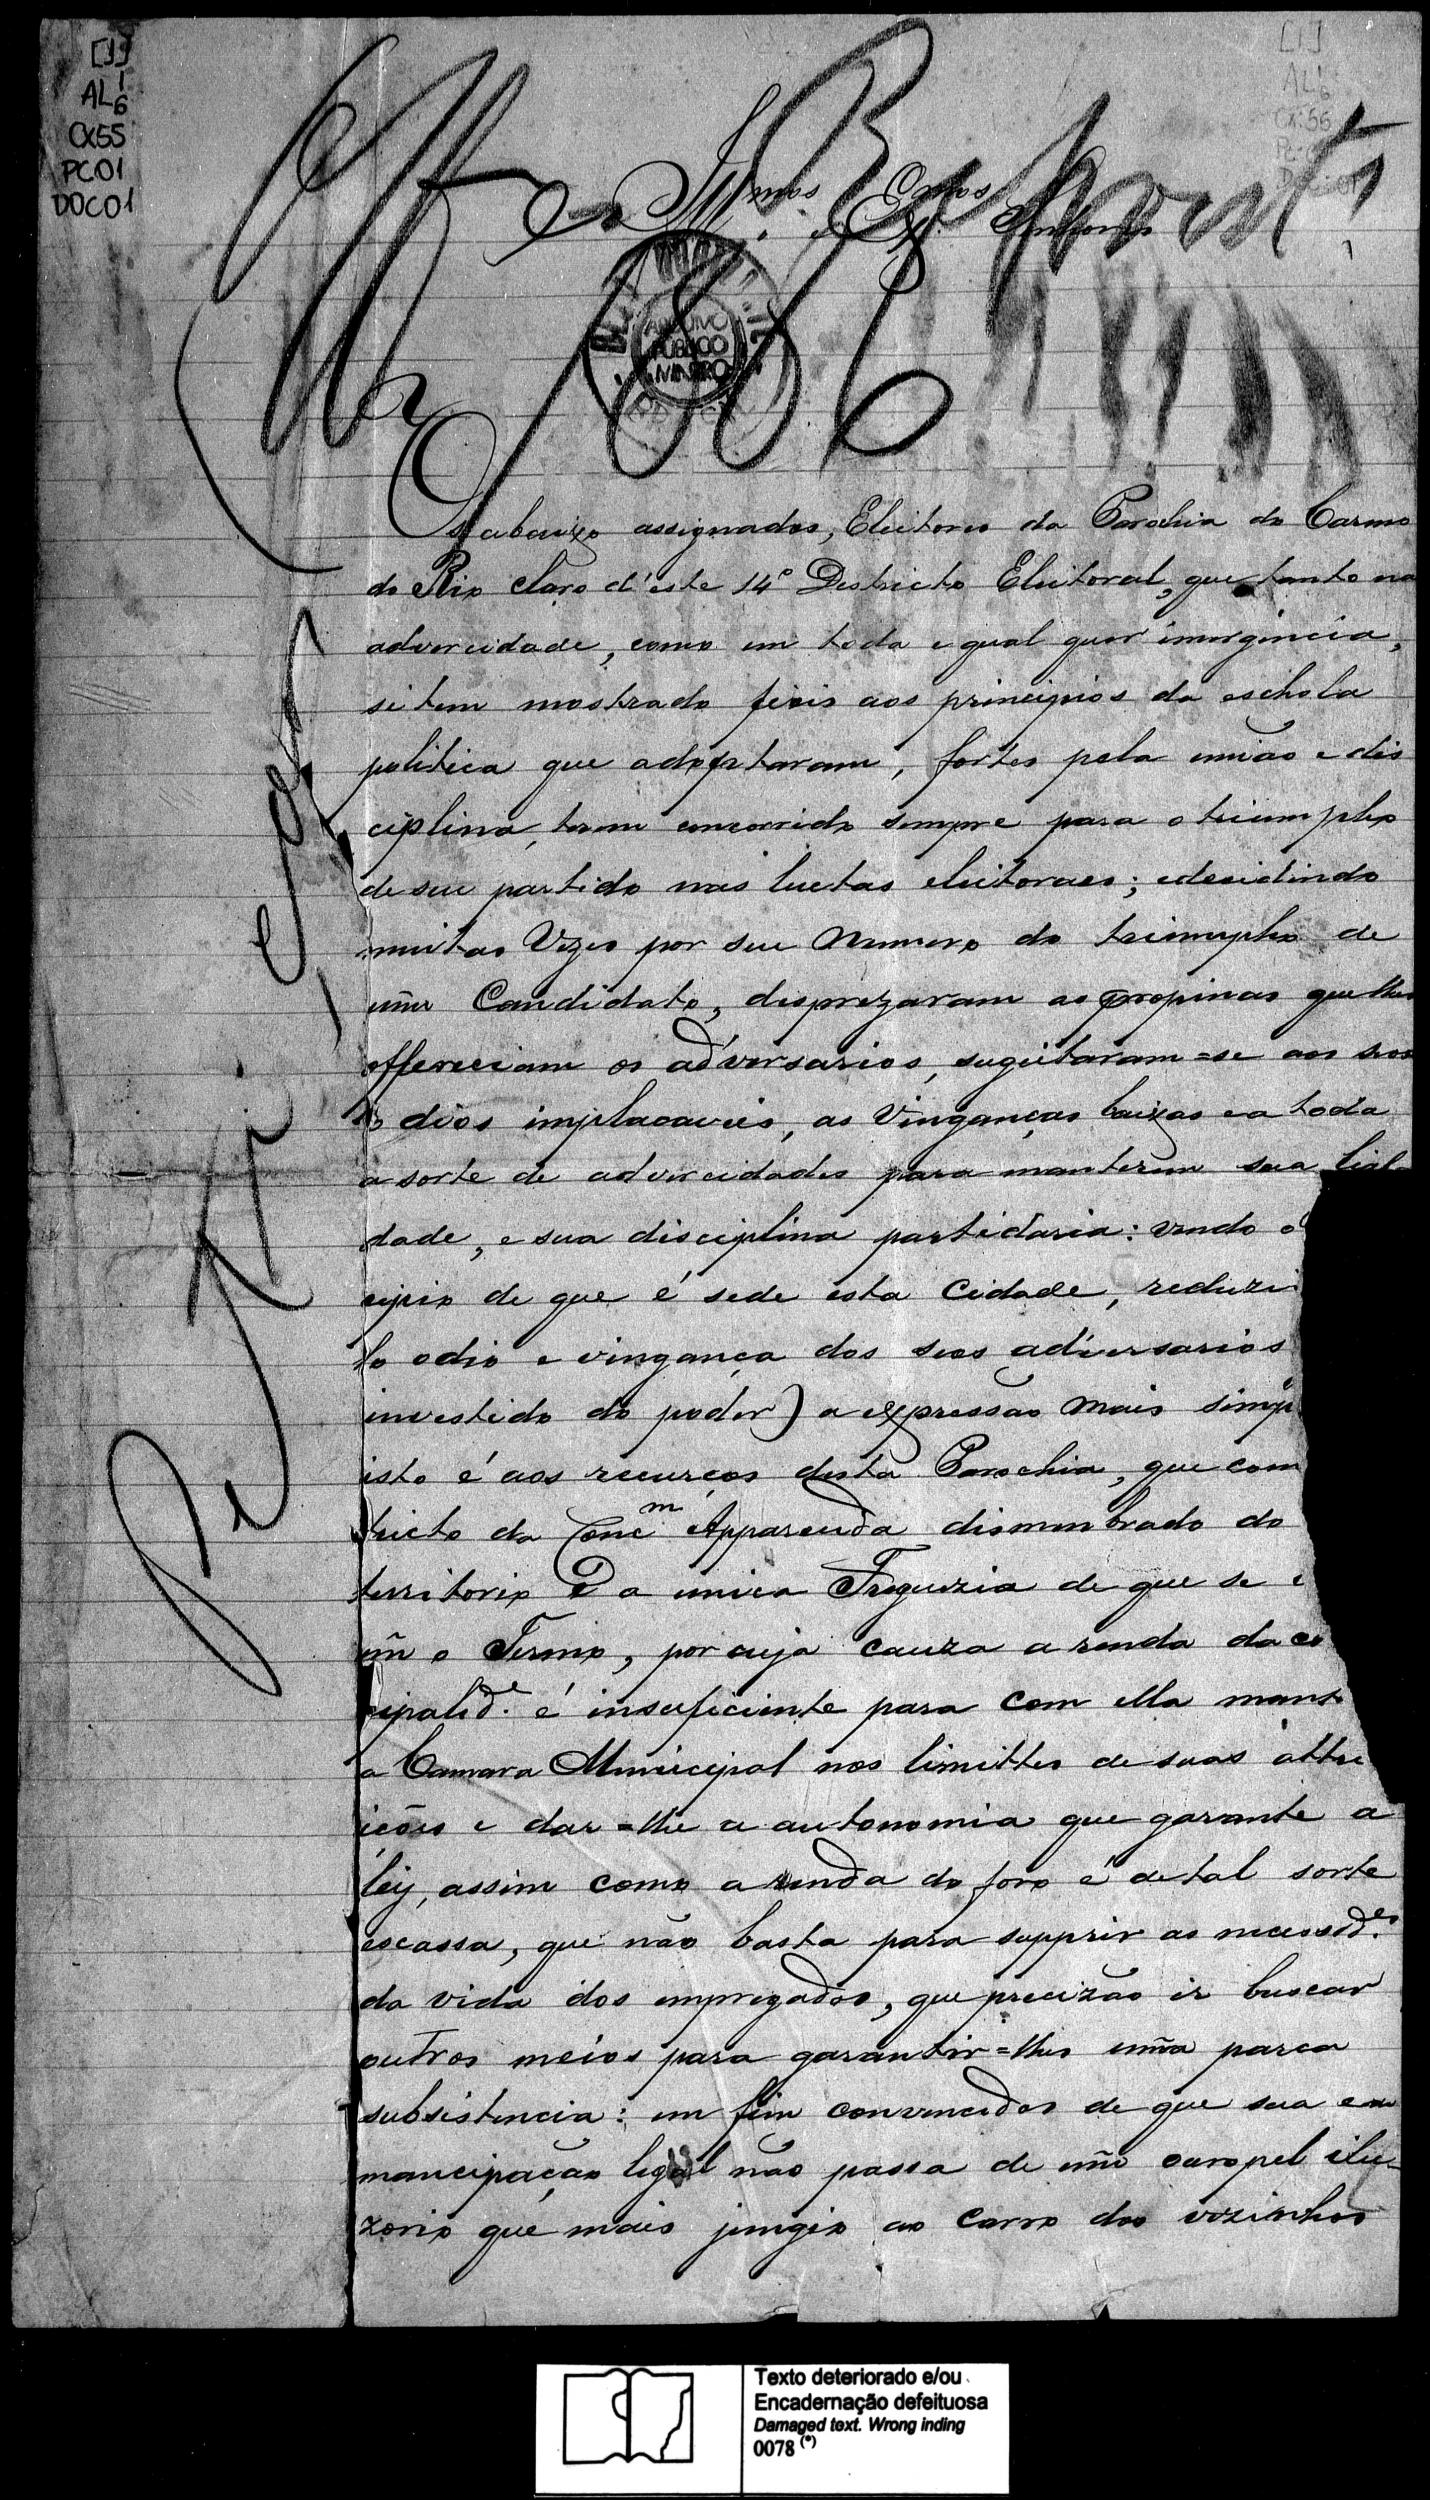 [1]
AL6
CX55
PC01
DOC01
[1]
AL6
Cx: 55
Illmos. e Exmos. Senhores
ARQUIVO
PUBLICO
MINEIRO
Os abaixo assignados, Eleitores da Parochia do Carmo
do Rio Claro d'este 14º Destricto Eleitoral, que tanto na
advercidade, como em toda e qual quer imergencia,
si tem mostrado fieis aos principios da eschola
politica que adoptaram, fortes pela união e dis
ciplina, teem concorrido sempre para o triumpho
de seu partido nas luctas eleitoraes; e decidindo
muitas Vezes por seu Numero do triumpho de
um Candidato, desprezaram as propinas que lhes
offereciam os adversarios, sugeitaram=se aos seos
odios implacaveis, as Vinganças baixas e a toda
a sorte de advercidades para manterem sua lial
dade, e sua disciplina partidaria: vendo o
cipio de que é sede esta Cidade, reduzi
lo odio e vingança dos seos adversarios
investido do poder) a expressão mais simp
isto é aos recurços desta Parochia, que com
tricto da Concm Apparecida dismembrado do
territorio é a unica Freguezia de que se c
um o Termo, por cuja cauza a renda da
cipalide. é insuficiente para com ella mant
a Camara Municipal nos limittes de suas attri
ições e dar=lhe a autonomia que garante a
ley, assim como a renda do foro é de tal sorte
escassa, que não basta para supprir as necessides.
da vida dos empregados, que precizão ir buscar
outros meios para garantir=lhes uma parca
subsistencia: em fim convencidos de que sua e
mancipação legal não passa de um ouropel ilu-
zorio que mais jungio ao carro dos vizinhos
Texto deteriorado e/ou
Encadernação defeituosa
Damaged text. Wrong inding
0078 (*)